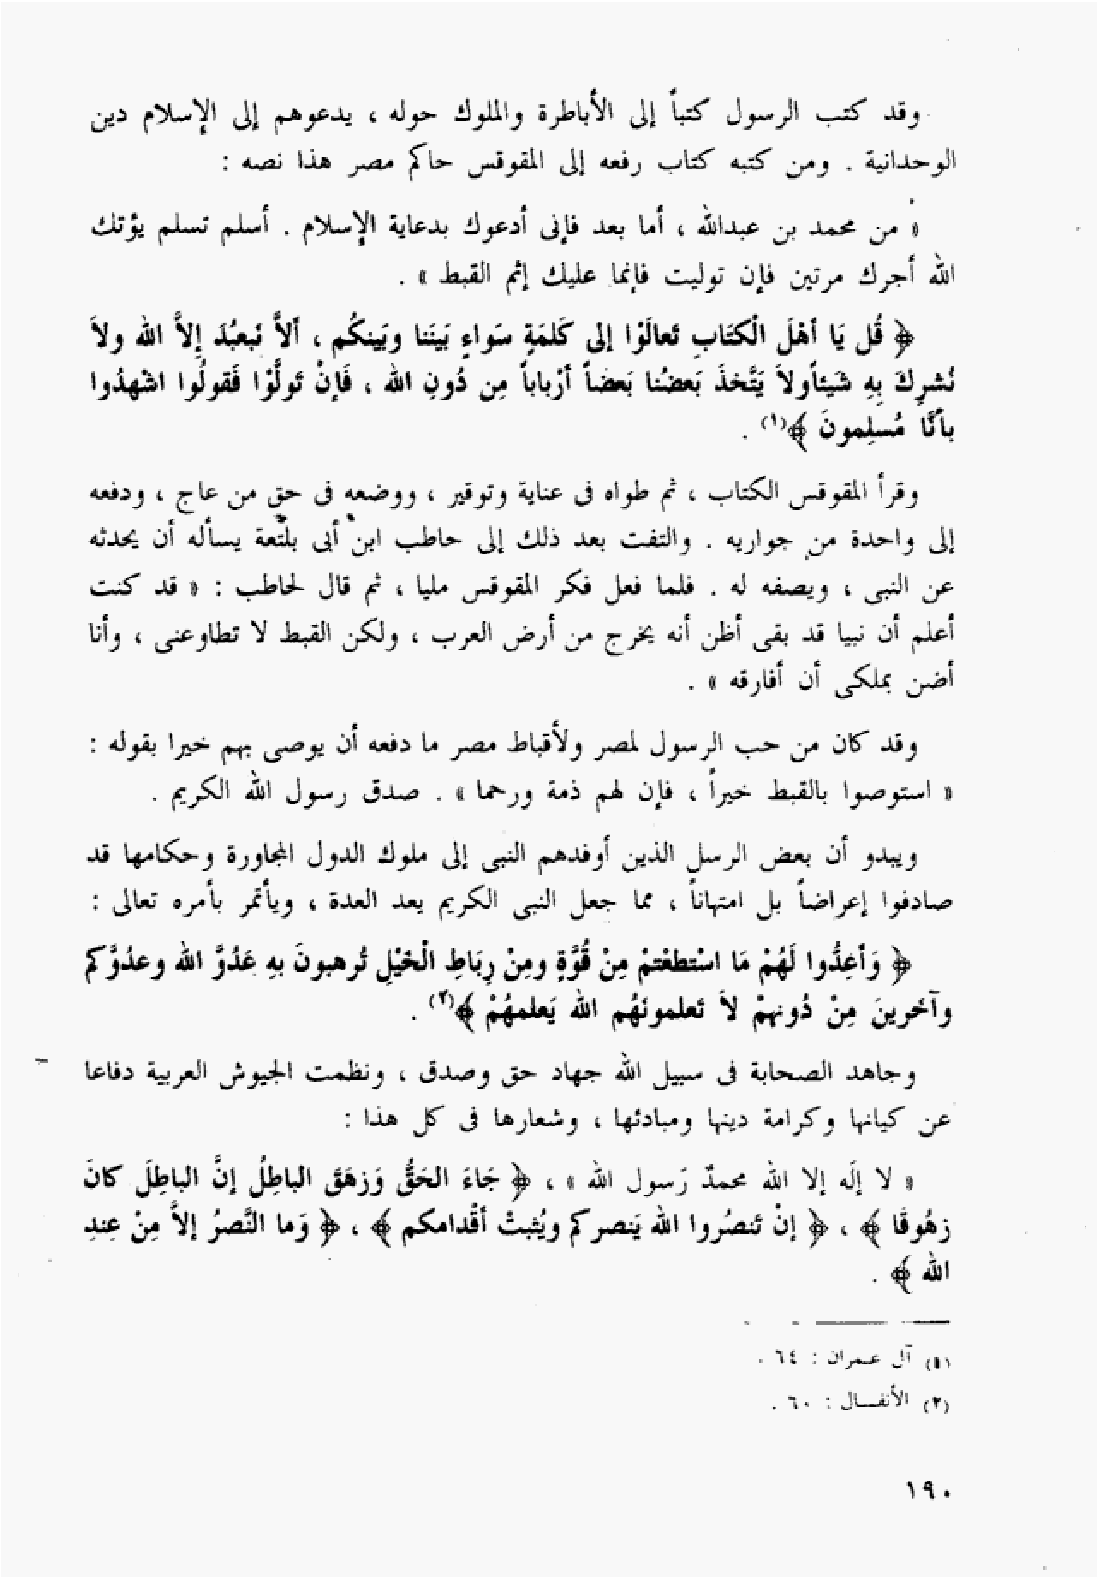 وقد كتب الرسول كتباً إلى الأباطرة والملوك حوله ، يدعوهم إلى الإسلام دين
الوحدانية . ومن كتبه كتاب رفعه إلى المقوقس حاكم مصر هذا نصه :
« من محمد بن عبدالله ، أما بعد فإنى أدعوك بدعاية الإسلام . أسلم تسلم يؤتك
الله أجرك مرتين فإن توليت فإنما عليك إثم القبط » .
﴿ قُل يَا أهْلَ الْكتَابِ تعالَوْا إلى كَلمَةٍ سَواءٍ بَينَنا وبَينكُم ، ألاَّ نَعبُدَ إلاَّ الله ولاَ
نُشرِكَ بِهِ شَيئاً ولاَ يَتَّخذَ بَعضُنا بَعضاً أرْباباً مِن دُونِ الله ، فَإنْ تَولَّوْا فَقولُوا اشهدُوا
بأنَّا مُسلِمونَ ﴾(١) .
وقرأ المقوقس الكتاب ، ثم طواه فى عناية وتوقير ، ووضعه فى حق من عاج ، ودفعه
إلى واحدة من جواريه . والتفت بعد ذلك إلى حاطب ابن أبى بلتعة يسأله أن يحدثه
عن النبى ، ويصفه له . فلما فعل فكر المقوقس مليا ، ثم قال لحاطب : « قد كنت
أعلم أن نبيا قد بقى أظن أنه يخرج من أرض العرب ، ولكن القبط لا تطاوعنى ، وأنا
أضن بملكى أن أفارقه » .
وقد كان من حب الرسول لمصر ولأقباط مصر ما دفعه أن يوصى بهم خيرا بقوله :
« استوصوا بالقبط خيراً ، فإن لهم ذمة ورحما » . صدق رسول الله الكريم .
ويبدو أن بعض الرسل الذين أوفدهم النبى إلى ملوك الدول المجاورة وحكامها قد
صادفوا إعراضاً بل امتهاناً ، مما جعل النبى الكريم يعد العدة ، ويأتمر بأمره تعالى :
﴿ وَأعِدُّوا لَهُمْ مَا اسْتطعْتمْ مِنْ قُوَّةٍ ومِنْ رِبَاطِ الْخيْلِ تُرهبونَ بهِ عَدُوَّ الله وعدُوَّكم
وآخرينَ مِنْ دُونهمْ لاَ تعلمونَهُم الله يَعلمهُمْ ﴾(٢) .
وجاهد الصحابة فى سبيل الله جهاد حق وصدق ، ونظمت الجيوش العربية دفاعا
عن كيانها وكرامة دينها ومبادئها ، وشعارها فى كل هذا :
« لا إلَه إلا الله محمدٌ رَسول الله » ، ﴿ جَاءَ الحَقُّ وَزهَقَ الباطِلُ إنَّ الباطِلَ كانَ
زهُوقًا ﴾ ، ﴿ إنْ تَنصُروا الله يَنصركم ويُثبتْ أقْدامكم ﴾ ، ﴿ وَما النَّصرُ إلاَّ مِنْ عِندِ
الله ﴾ .
(١) آل عمران : ٦٤ .
(٢) الأنفال : ٦٠ .
١٩٠